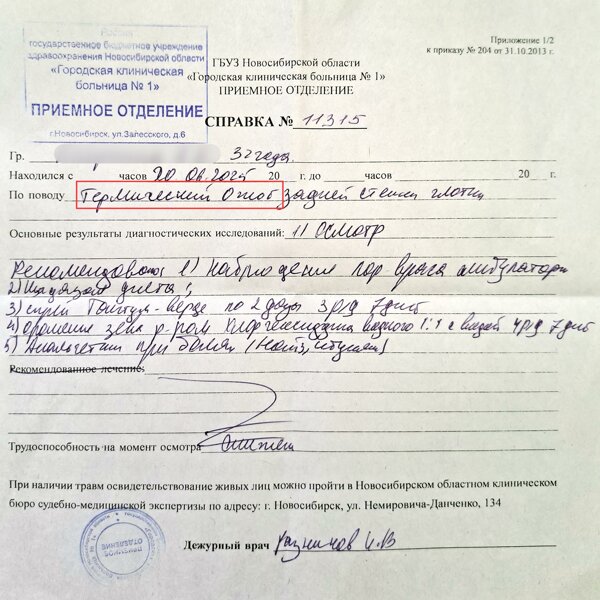 Россия
государственное бюджетное учреждение
здравоохранения Новосибирской области
«Городская клиническая
больница № 1»
ПРИЕМНОЕ ОТДЕЛЕНИЕ
г.Новосибирск, ул.Залесского, д.6
Приложение 1/2
к приказу № 204 от 31.10.2013 г.
ГБУЗ Новосибирской области
«Городская клиническая больница № 1»
ПРИЕМНОЕ ОТДЕЛЕНИЕ
СПРАВКА № 11315
Гр. 32 года.
Находился с часов 20.08.2025 20 г. до часов 20 г.
По поводу Термический ожог задней стенки глотки
Основные результаты диагностических исследований: 1) Осмотр
Рекомендовано: 1) Наблюдение лор врача амбулаторно
2) Щадящая диета;
3) спрей Тантум-верде по 2 дозы 3 р/д 7 дней
4) орошение зева р-ром хлоргексидина водного 1:1 с водой 4 р/д 7 дней
5) Анальгетики при болях (найз, ибуклин)
Рекомендованное лечение:
Трудоспособность на момент осмотра
При наличии травм освидетельствование живых лиц можно пройти в Новосибирском областном клиническом
бюро судебно-медицинской экспертизы по адресу: г. Новосибирск, ул. Немировича-Данченко, 134
ПРИЕМНОЕ
ОТДЕЛЕНИЕ
Дежурный врач И.В